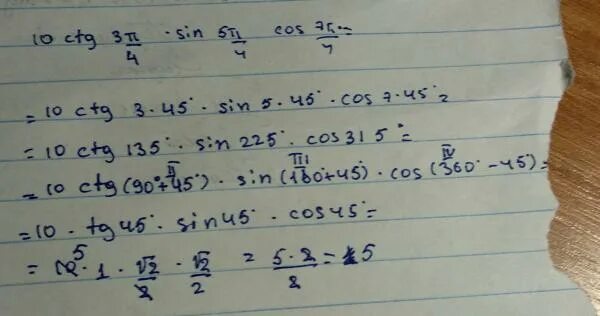 10 ctg 3π/4 · sin 5π/4 cos 7π/4 =
= 10 ctg 3·45° · sin 5·45° · cos 7·45° =
= 10 ctg 135° · sin 225° · cos 315° =
= 10 ctg(90°+45°) · sin(180°+45°) · cos(360° - 45°) =
II III IV
= 10 · tg 45° · sin 45° · cos 45° =
= 10 5 · 1 · √2/2 · √2/2 = 5·2/2 = 5